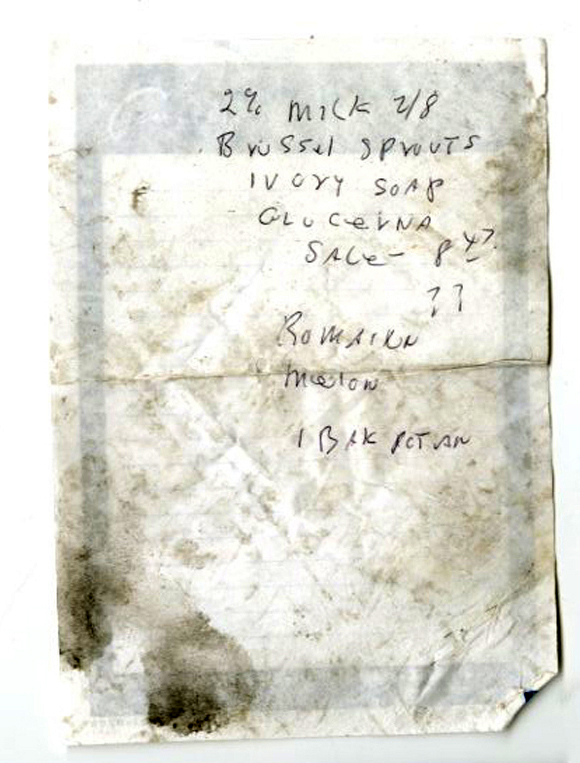 2% MILK 2/8
BRUSSel SPROUTS
IVORY SOAP
GLUCeRNA
SALe- 8 47
??
ROMAIRN
MeLON
1 BAK POTAN